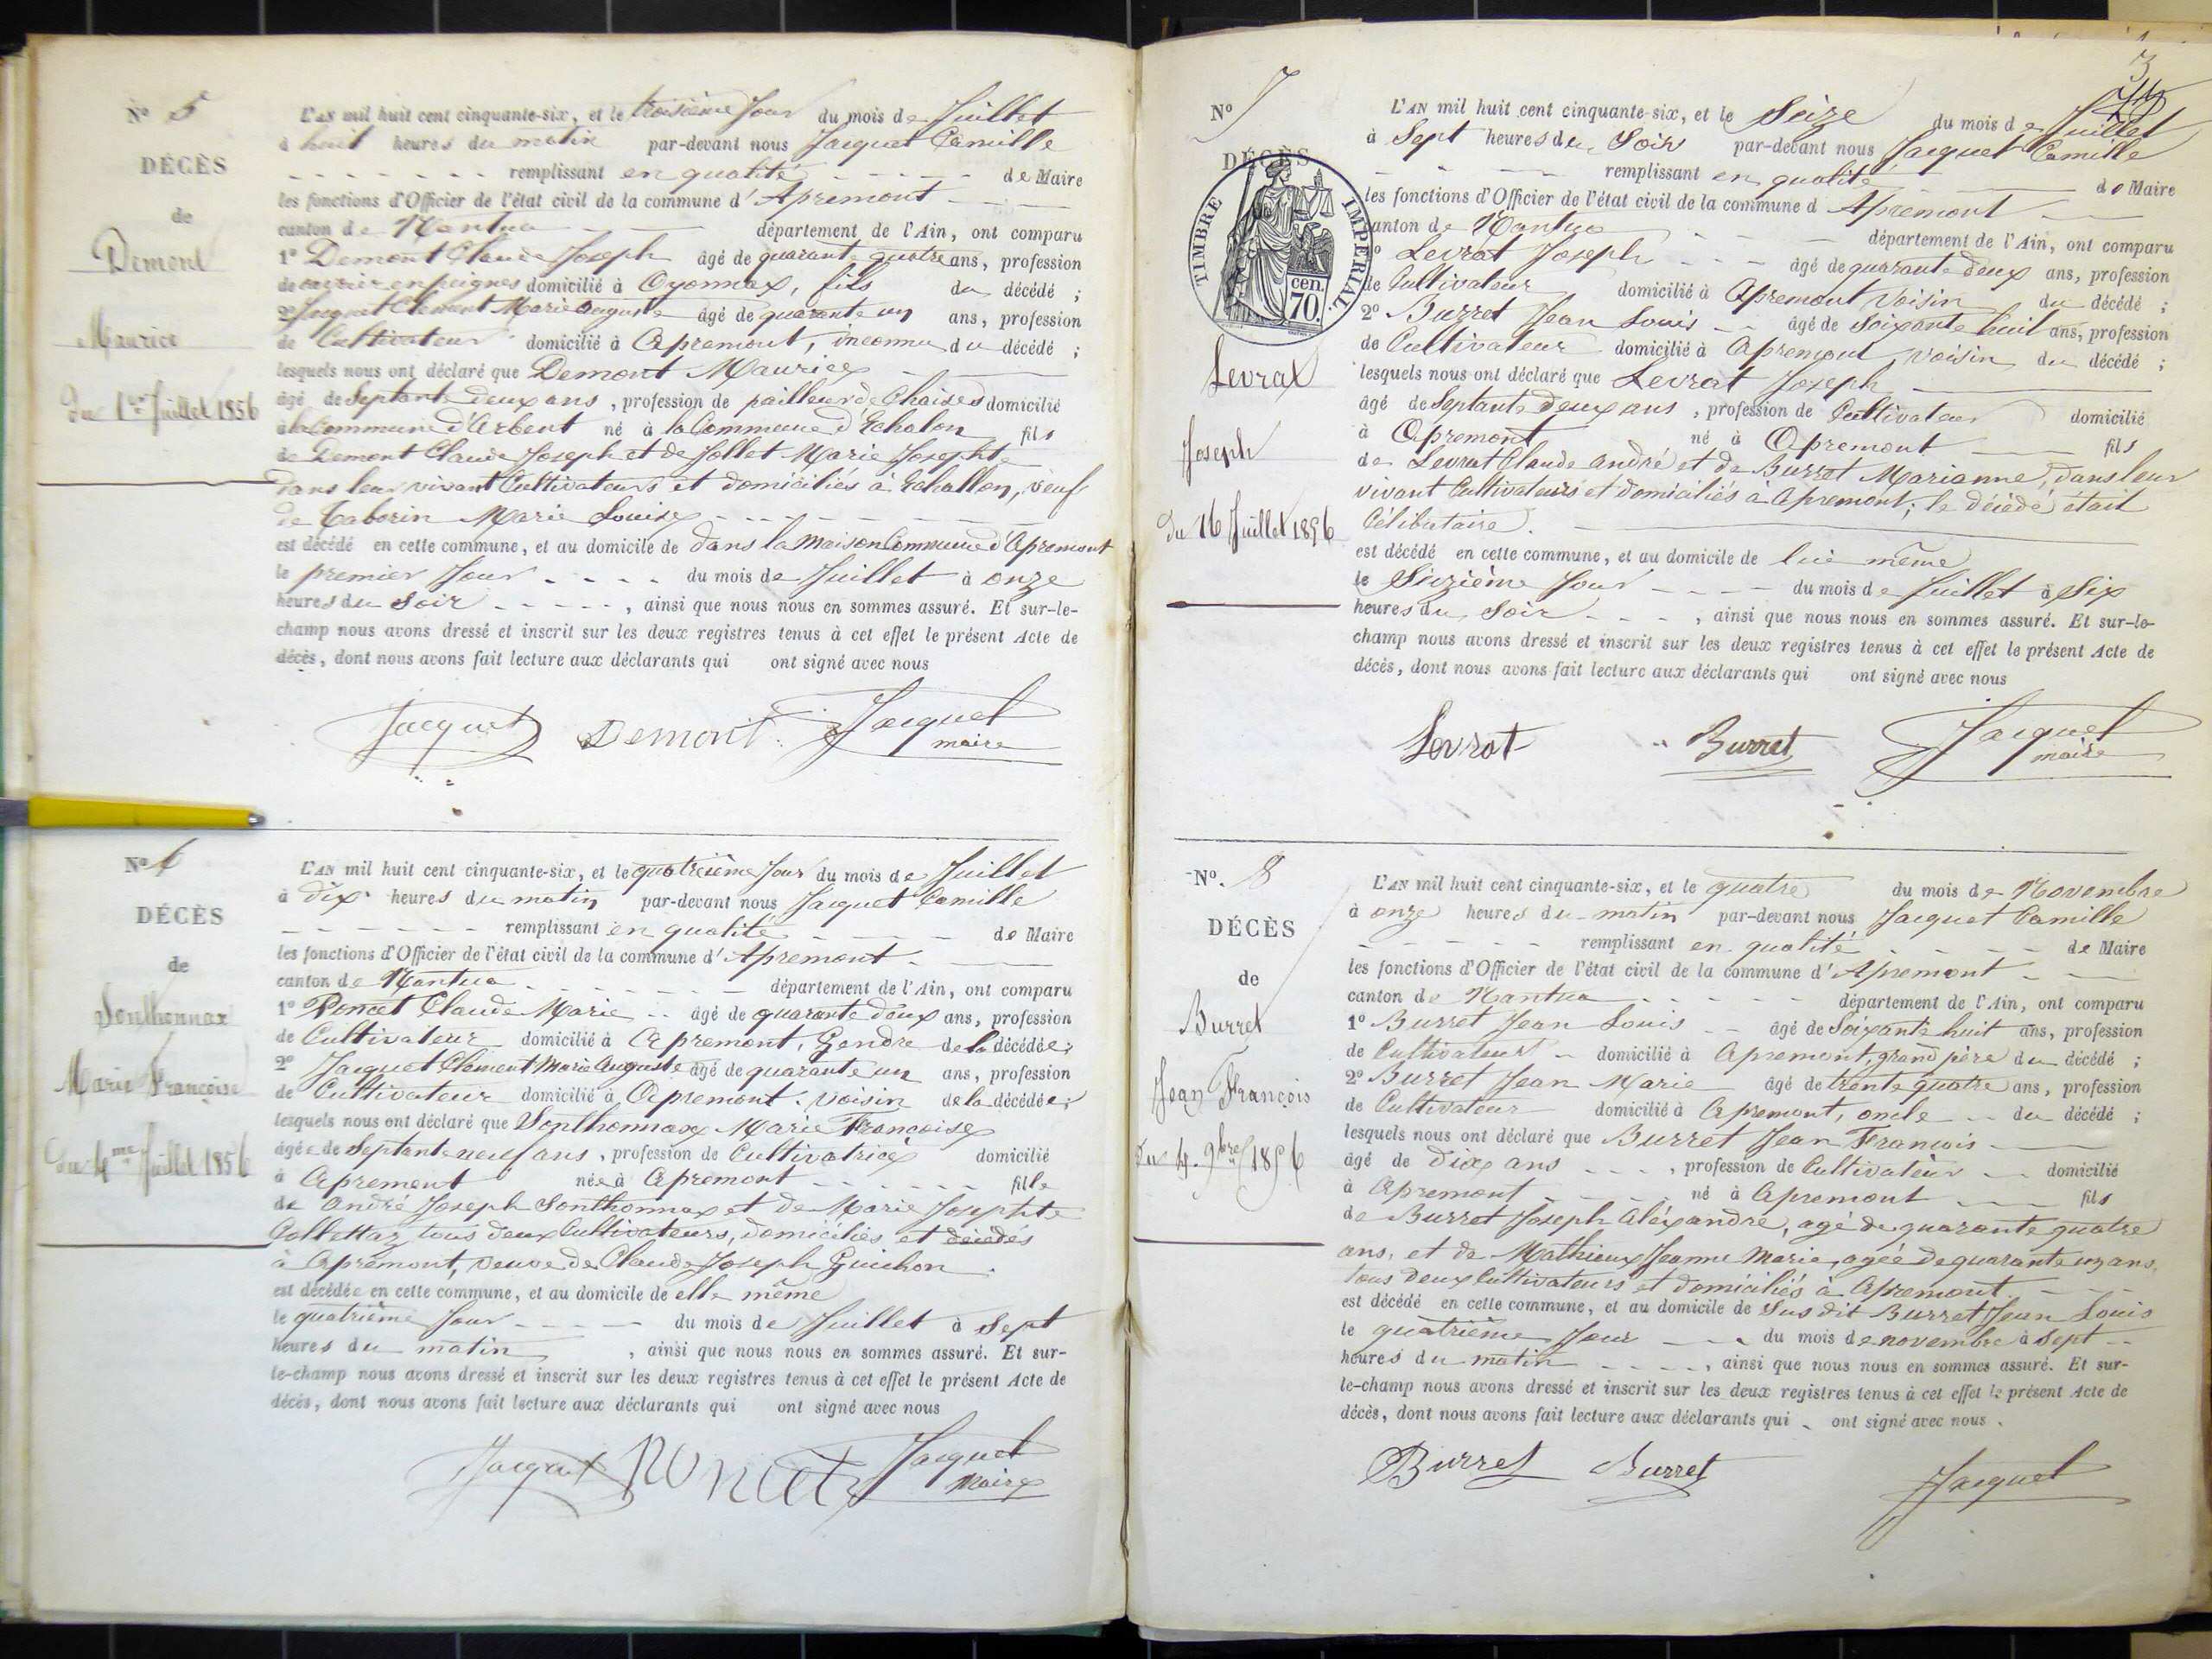 N° 5
DÉCÈS
de
Demont
Maurice
Du 1er Juillet 1856
L'AN mil huit cent cinquante-six, et le troisième Jour du mois de Juillet
à huit heures du matin par-devant nous Jacquet Camille
remplissant en qualité de Maire
les fonctions d'Officier de l'état civil de la commune d'Apremont
canton de Nantua département de l'Ain, ont comparu
1° Demont Claude Joseph âgé de quarante quatre ans, profession
de ouvrier en peignes domicilié à Oyonnax, fils du décédé ;
2° Jacquet Clément Marie Auguste âgé de quarante un ans, profession
de Cultivateur domicilié à Apremont, inconnu du décédé ;
lesquels nous ont déclaré que Demont Maurice
âgé de Septante deux ans, profession de pailleur de Chaises domicilié
à la Commune d'Arbent né à la Commune d'Echalon fils
de Demont Claude Joseph et de Jollet Marie Josephte
dans leur vivant Cultivateurs et domiciliés à Echallon, veuf
de Taborin Marie Louise
est décédé en cette commune, et au domicile de dans la Maison Commune d'Apremont
le premier Jour du mois de Juillet à onze
heures du Soir, ainsi que nous nous en sommes assuré. Et sur-le-
champ nous avons dressé et inscrit sur les deux registres tenus à cet effet le présent Acte de
décès, dont nous avons fait lecture aux déclarants qui ont signé avec nous
Jacquet Demont Jacquet
maire
N° 6
DÉCÈS
de
Sonthonnax
Marie Françoise
Du 4me Juillet 1856
L'AN mil huit cent cinquante-six, et le quatrième Jour du mois de Juillet
à Dix heures du matin par-devant nous Jacquet Camille
remplissant en qualité de Maire
les fonctions d'Officier de l'état civil de la commune d'Apremont
canton de Nantua département de l'Ain, ont comparu
1° Poncet Claude Marie âgé de quarante deux ans, profession
de Cultivateur domicilié à Apremont, Gendre de la décédée ;
2° Jacquet Clément Marie Auguste âgé de quarante un ans, profession
de Cultivateur domicilié à Apremont, voisin de la décédée ;
lesquels nous ont déclaré que Sonthonnax Marie Françoise
âgée de Septante neuf ans, profession de Cultivatrice domicilié
à Apremont née à Apremont fille
de André Joseph Sonthonnax et de Marie Josephte
Collettaz tous deux Cultivateurs, domiciliés et décédés
à Apremont, veuve de Claude Joseph Guichon
est décédée en cette commune, et au domicile de elle même
le quatrième Jour du mois de Juillet à Sept
heures du matin, ainsi que nous nous en sommes assuré. Et sur-
le-champ nous avons dressé et inscrit sur les deux registres tenus à cet effet le présent Acte de
décès, dont nous avons fait lecture aux déclarants qui ont signé avec nous
Jacquet Poncet Jacquet
Maire
3
N° 7
DÉCÈS
TIMBRE IMPÉRIAL
70 cen.
Levrat
Joseph
Du 16 Juillet 1856
L'AN mil huit cent cinquante-six, et le Seize du mois de Juillet
à Sept heures du Soir par-devant nous Jacquet Camille
remplissant en qualité de Maire
les fonctions d'Officier de l'état civil de la commune d Apremont
canton de Nantua département de l'Ain, ont comparu
1° Levrat Joseph âgé de quarante deux ans, profession
de Cultivateur domicilié à Apremont voisin du décédé ;
2° Burret Jean Louis âgé de Soixante huit ans, profession
de Cultivateur domicilié à Apremont, voisin du décédé ;
lesquels nous ont déclaré que Levrat Joseph
âgé de Septante Deux ans, profession de Cultivateur domicilié
à Apremont né à Apremont fils
de Levrat Claude André et de Burret Marianne, dans leur
vivant Cultivateurs et domiciliés à Apremont ; le décédé était
Célibataire.
est décédé en cette commune, et au domicile de lui même
le Sizième Jour du mois de Juillet à Six
heures du Soir, ainsi que nous nous en sommes assuré. Et sur-le-
champ nous avons dressé et inscrit sur les deux registres tenus à cet effet le présent Acte de
décès, dont nous avons fait lecture aux déclarants qui ont signé avec nous
Levrat Burret Jacquet
maire
N°. 8
DÉCÈS
de
Burret
Jean François
Du 4. 9bre 1856
L'AN mil huit cent cinquante-six, et le quatre du mois de Novembre
à onze heures du matin par-devant nous Jacquet Camille
remplissant en qualité de Maire
les fonctions d'Officier de l'état civil de la commune d'Apremont
canton de Nantua département de l'Ain, ont comparu
1° Burret Jean Louis âgé de Soixante huit ans, profession
de Cultivateur domicilié à Apremont, grand père du décédé ;
2° Burret Jean Marie âgé de trente quatre ans, profession
de Cultivateur domicilié à Apremont, oncle du décédé ;
lesquels nous ont déclaré que Burret Jean François
âgé de Dix ans, profession de Cultivateur domicilié
à Apremont né à Apremont fils
de Burret Joseph Aléxandre, agé de quarante quatre
ans, et de Mathieux Jeanne Marie, agée de quarante un ans,
tous deux Cultivateurs et domiciliés à Apremont
est décédé en cette commune, et au domicile de Sus dit Burret Jean Louis
le quatrième Jour du mois de novembre à Sept
heures du matin, ainsi que nous nous en sommes assuré. Et sur-
le-champ nous avons dressé et inscrit sur les deux registres tenus à cet effet le présent Acte de
décès, dont nous avons fait lecture aux déclarants qui ont signé avec nous.
Burret Burret Jacquet